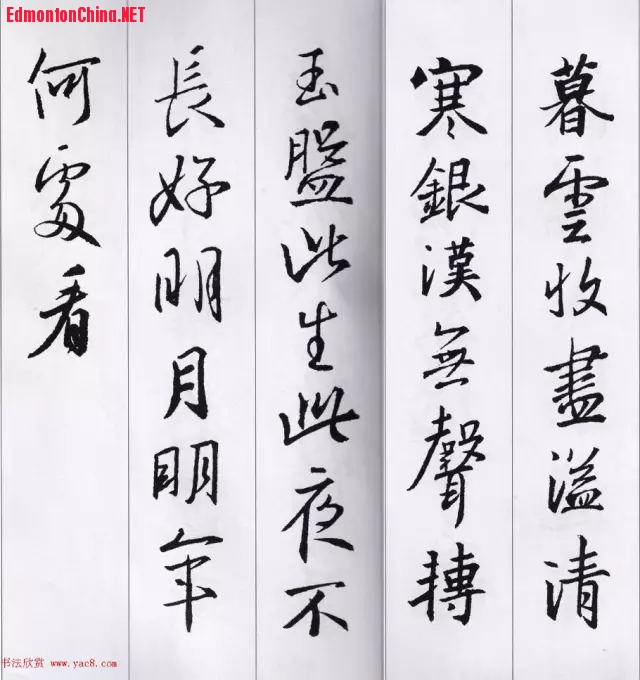 EdmontonChina.NET
暮雲收盡溢清
寒銀漢無聲轉
玉盤此生此夜不
長好明月明年
何處看
书法欣赏 www.yac8.com